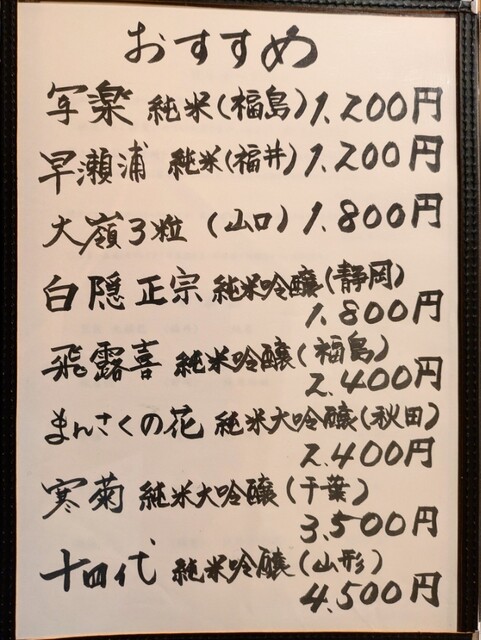 おすすめ
写楽 純米(福島) 1,200円
早瀬浦 純米(福井) 1,200円
大嶺3粒 (山口) 1,800円
白隠正宗 純米吟醸(静岡)
1,800円
飛露喜 純米吟醸(福島)
2,400円
まんさくの花 純米大吟醸(秋田)
2,400円
寒菊 純米大吟醸(千葉)
3,500円
十四代 純米吟醸(山形)
4,500円